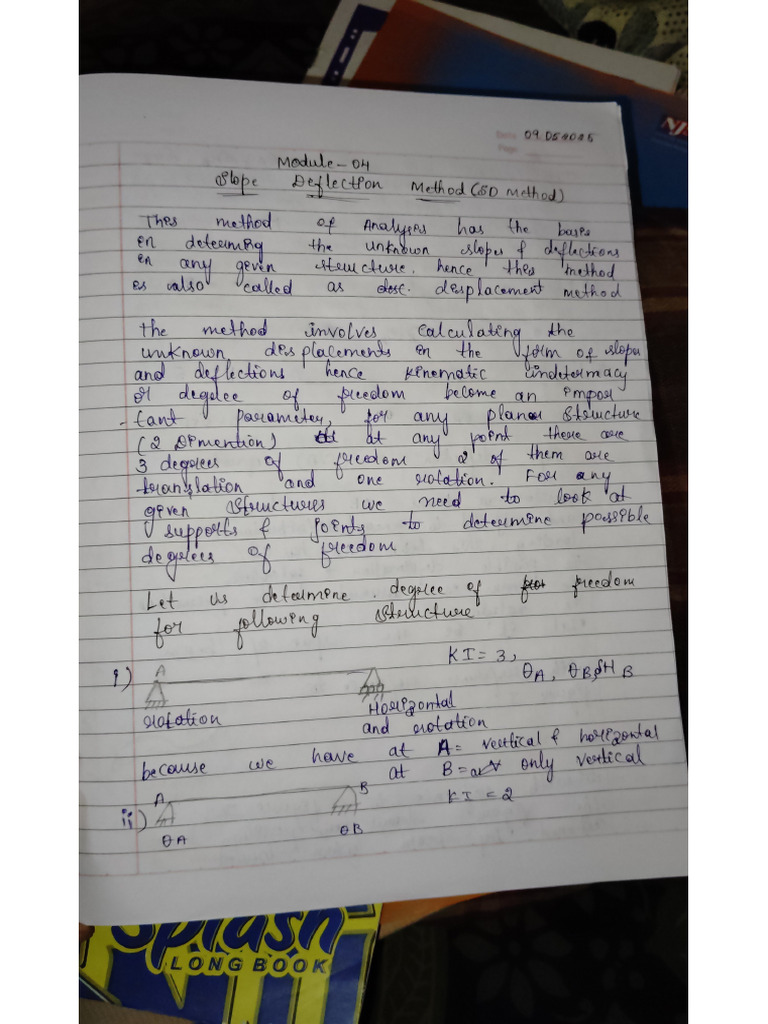 09.05.2025
Module-04
Slope Deflection Method (SD Method)
This method of Analysis has the basis
in determing the unknown slopes & deflections
in any given structure. hence this method
is also called as disc. displacement method
the method involves calculating the
unknown displacements in the form of slopes
and deflections hence kinematic indetermacy
or degree of freedom become an impor
-tant parameter, for any planar structure
(2 Dimention) at any point there are
3 degrees of freedom 2 of them are
translation and one rotation. For any
given structures we need to look at
supports & joints to determine possible
degrees of freedom
Let us determine degree of freedom
for following structure
i) A KI = 3,
θA, θB, δH B
rotation Horizontal
and rotation
because we have at A = vertical & horizontal
at B = only vertical
ii) A B KI = 2
θA θB
Splash
LONG BOOK